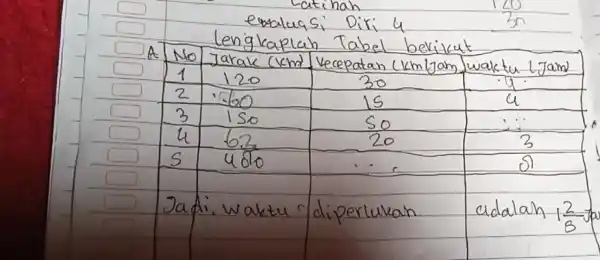 Latihan 120
evaluasi Diri 4 30
lengkaplah Tabel berikut
A No Jarak (km) kecepatan (km/jam) waktu (Jam)
1 120 30 4
2 60 15 4
3 150 50 ...
4 62 20 3
5 480 ... 8
Jadi. waktu diperlukan adalah 1 2/3 Ja